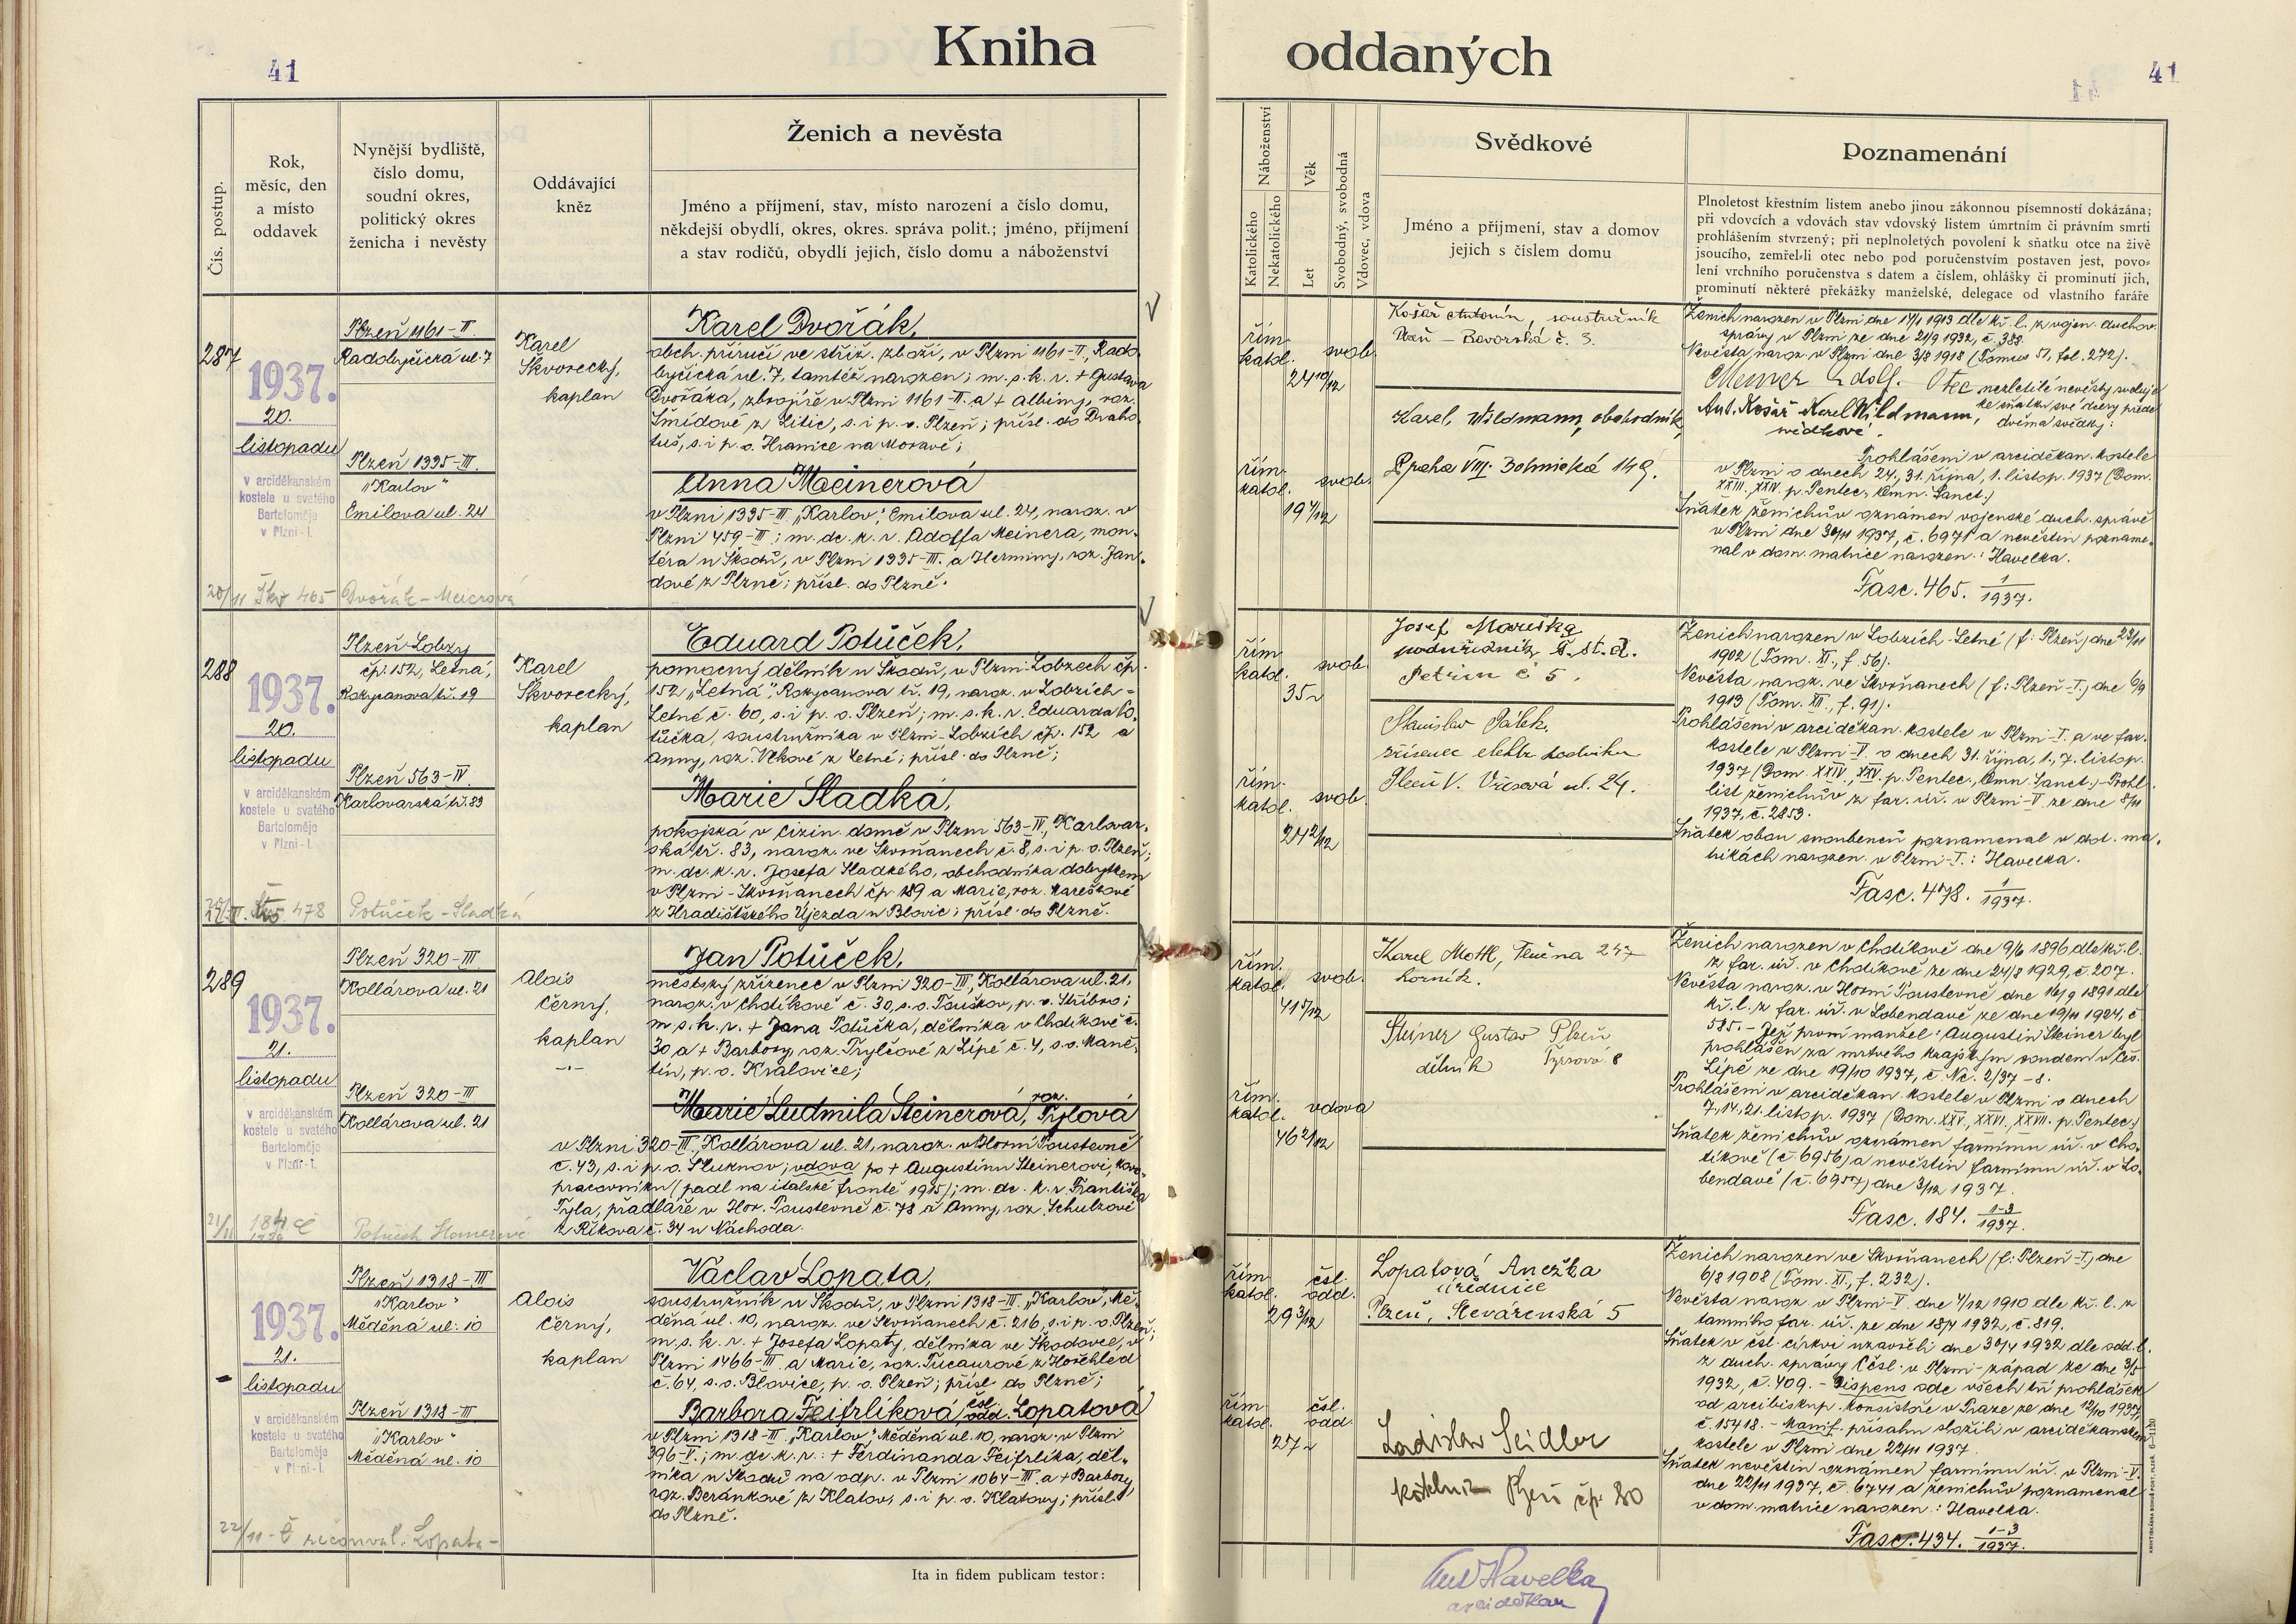 41
Kniha oddaných
41
Čís. postup.
Rok,
měsíc, den
a místo
oddavek
Nynější bydliště,
číslo domu,
soudní okres,
politický okres
ženicha i nevěsty
Oddávající
kněz
Ženich a nevěsta
Jméno a příjmení, stav, místo narození a číslo domu,
někdejší obydlí, okres, okres. správa polit.; jméno, příjmení
a stav rodičů, obydlí jejich, číslo domu a náboženství
Náboženství
Katolického
Nekatolického
Věk
Let
Svobodný, svobodná
Vdovec, vdova
Svědkové
Jméno a příjmení, stav a domov
jejich s číslem domu
Poznamenání
Plnoletost křestním listem anebo jinou zákonnou písemností dokázána;
při vdovcích a vdovách stav vdovský listem úmrtním či právním smrti
prohlášením stvrzený; při neplnoletých povolení k sňatku otce na živě
jsoucího, zemřel-li otec nebo pod poručenstvím postaven jest, povo-
lení vrchního poručenstva s datem a číslem, ohlášky či prominutí jich,
prominutí některé překážky manželské, delegace od vlastního faráře
287
1937.
20.
listopadu
v arciděkanském
kostele u svatého
Bartoloměje
v Plzni-I.
Plzeň 1161-II.
Radobyčická ul. 7
Plzeň 1335-III.
"Karlov"
Emilova ul. 24
Karel
Skvorecký,
kaplan
Karel Dvořák,
obch. příručí ve střiž. zboží, v Plzni 1161-II, Rado-
byčická ul. 7, tamtéž narozen; m. s. k. r. + Gustava
Dvořáka, zbrojíře v Plzni 1161-II. a + Albiny, roz.
Šmídové z Litic, s. i p. o. Plzeň; přísl. do Draho-
tuš, s. i p. o. Hranice na Moravě;
Anna Meinerová
v Plzni 1335-III, "Karlov", Emilova ul. 24, naroz. v
Plzni 459-III; m. dc. k. r. Adolfa Meinera, mon-
téra u Škodů, v Plzni 1335-III. a Herminy, roz. Jan-
dové z Plzně; přísl. do Plzně.
20/11 Škv 465 Dvořák-
řím.
katol.
svob.
24 10/12
řím.
katol.
svob.
19 4/12
Košář Antonín, soustružník
Plzeň - Bavorská č. 3.
Karel, Wildmann, obchodník,
Praha VIII. 149.
Ženich narozen v Plzni dne 17/1 1913 dle kř. l. z vojen. duchov.
správy v Plzni ze dne 21/9 1932, č. 388.
Nevěsta naroz. v Plzni dne 3/8 1918 (Tomus 51, fol. 272).
Meiner Adolf. Otec nezletilé nevěsty svoluje
ke sňatku své dcery před
dvěma svědky:
Ant. Košář Karel Wildmann,
svědkové.
Prohlášeni v arciděkan. kostele
v Plzni o dnech 24., 31. října, 1. listop. 1937 (Dom.
XXIII. XXIV. p. Pentec., Omn. Sanct.)
Sňatek ženichův oznámen vojenské duch. správě
v Plzni dne 30/11 1937, č. 6971 a nevěstin pozname-
nal v dom. matrice narozen.: Havelka.
Fasc. 465. 1/1937.
288
1937.
20.
listopadu
v arciděkanském
kostele u svatého
Bartoloměje
v Plzni-I.
Plzeň-Lobzy
čp. 152, Letná,
Rokycanova tř. 19
Plzeň 563-IV
Karlovarská tř. 83
Karel
Skvorecký,
kaplan
Eduard Potůček,
pomocný dělník u Škodů, v Plzni-Lobzech čp.
152 "Letná", Rokycanova tř. 19, naroz. v Lobzích-
Letné č. 60, s. i p. o. Plzeň; m. s. k. r. Eduarda Po-
tůčka, soustružníka v Plzni-Lobzích čp. 152 a
Anny, roz. Vlkové z Letné; přísl. do Plzně;
Marie Sladká,
pokojská v cizin. domě v Plzni 563-IV, Karlovar-
ská tř. 83, naroz. ve Skvrňanech č. 8, s. i p. o. Plzeň;
m. dc. k. r. Josefa Sladkého, obchodníka dobytkem
v Plzni-Skvrňanech čp. 189 a Marie, roz. Marešové
z Hradišťského Újezda u Blovic; přísl. do Plzně.
478 Potůček-Sladká
řím.
katol.
svob.
35
řím.
katol.
svob.
24 2/12
Josef
Petřín č 5.
Stanislav Pálek,
zřízenec elektr. podniku
Plzeň V. ul. 24.
Ženich narozen v Lobzích-Letné (f: Plzeň) dne 23/11
1902 (Tom. XI., f. 56).
Nevěsta naroz. ve Skvrňanech (f: Plzeň-I.) dne 6/9
1913 (Tom. XII., f. 91).
Prohlášeni v arciděkan. kostele v Plzni-I. a ve far.
kostele v Plzni-V o dnech 31. října, 1., 7. listop.
1937 (Dom. XXIV, XXV. p. Pentec., Omn. Sanct.)-Prohl.
list ženichův z far. úř. v Plzni-V ze dne 8/11
1937, č. 2853.
Sňatek obou snoubenců poznamenal v dot. ma-
trikách narozen. v Plzni-I.: Havelka.
Fasc. 478. 1/1937.
289
1937.
21.
listopadu
v arciděkanském
kostele u svatého
Bartoloměje
v Plzni-I.
Plzeň 320-III
Kollárova ul. 21
Plzeň 320-III
Kollárova ul. 21
Alois
Černý,
kaplan
Jan Potůček,
městský zřízenec v Plzni 320-III, Kollárova ul. 21,
naroz. v Chotíkově č. 30, s. o. Touškov, p. o. Stříbro;
m s. k. r. + Jana Potůčka, dělníka v Chotíkově č.
30 a + Barbory, roz. Trylčové z Lípé č. 4, s. o. Maně-
tín, p. o. Kralovice;
Marie Ludmila Steinerová, roz. Tylová
v Plzni 320-III, Kollárova ul. 21, naroz. v Horní Poustevně
č. 43, s. i p. o. Šluknov; vdova po + Augustinu Steinerovi, kovo-
pracovníku (padl na italské frontě 1915); m. dc. k. r. Františka
Tyla, přadláře v Hor. Poustevně č. 78 a Anny, roz. Schulzové
z Říkova č. 34 u Náchoda.
21/11 184 Č
Potůček
řím.
katol.
svob.
41 5/12
řím.
katol.
vdova
46 2/12
Karel Mottl, Tlučna 247
horník.
Steiner Gustav Plzeň
dělník Tyršova 8
Ženich narozen v Chotíkově dne 9/6 1896 dle kř. l.
z far. úř. v Chotíkově ze dne 24/8 1929, č. 207.
Nevěsta naroz. v Horní Poustevně dne 16/9 1891 dle
kř. l. z far. úř. v Lobendavě ze dne 19/11 1924, č
585. - Její první manžel: Augustin Steiner byl
prohlášen za mrtvého krajským soudem v Čes.
Lípě ze dne 19/10 1937, č. Nc. 2/37-8.
Prohlášeni v arciděkan. kostele v Plzni o dnech
7., 14., 21. listop. 1937 (Dom. XXV., XXVI., XXVII. p. Pentec.)
Sňatek ženichův oznámen farnímu úř. v Cho-
tíkově (č. 6956) a nevěstin farnímu úř. v Lo-
bendavě (č. 6957) dne 3/12 1937.
Fasc. 184. 1-3/1937.
1937.
21.
listopadu
v arciděkanském
kostele u svatého
Bartoloměje
v Plzni-I.
Plzeň 1318-III
"Karlov"
Měděná ul. 10
Plzeň 1318-III
"Karlov"
Měděná ul. 10
Alois
Černý,
kaplan
Václav Lopata,
soustružník u Škodů, v Plzni 1318-III. "Karlov", Mě-
děná ul. 10, naroz. ve Skvrňanech č. 216, s. i p. o. Plzeň;
m. s. k. r. + Josefa Lopaty, dělníka ve Škodovce, v
Plzni 1466-III a Marie, roz. Tucaurové z Hořehled
č. 64, s. o. Blovice, p. o. Plzeň; přísl. do Plzně;
Barbora Feifrlíková, čsl. odd. Lopatová
v Plzni 1318-III. "Karlov", Měděná ul. 10, naroz. v Plzni
396-V.; m. dc. k. r.: + Ferdinanda Feifrlíka, děl-
níka u Škodů na odp. v Plzni 1064-III. a + Barbory
roz. Beránkové z Klatov, s. i p. o. Klatovy; přísl.
do Plzně.
22/11 - Č Lopata-
řím.
katol.
čsl.
odd.
29 3/12
řím.
katol.
čsl.
odd.
27
Lopatová Anežka
úřednice
Plzeň, 5
Ladislav Seidler
Plzeň čp. 80
Ženich narozen ve Skvrňanech (f: Plzeň-I.) dne
6/8 1908 (Tom. XI., f. 232).
Nevěsta naroz. v Plzni-V. dne 4/12 1910 dle kř. l. z
tamního far. úř. ze dne 18/4 1932, č. 819.
Sňatek v čsl. církvi uzavřeli dne 30/4 1932 dle odd. l.
z duch. správy Cčsl. v Plzni-západ ze dne 3/5
1932, č. 409. - Dispens ode všech tří prohlášek
od arcibiskup. konsistoře v Praze ze dne 12/10 1937,
č. 15418. - Manif. přísahu složili v arciděkanském
kostele v Plzni dne 22/11 1937.
Sňatek nevěstin oznámen farnímu úř. v Plzni-V.
dne 22/11 1937, č. 6741 a ženichův poznamenal
v dom. matrice narozen.: Havelka.
Fasc. 434. 1-3/1937.
Ita in fidem publicam testor:
Ant Havelka
arciděkan